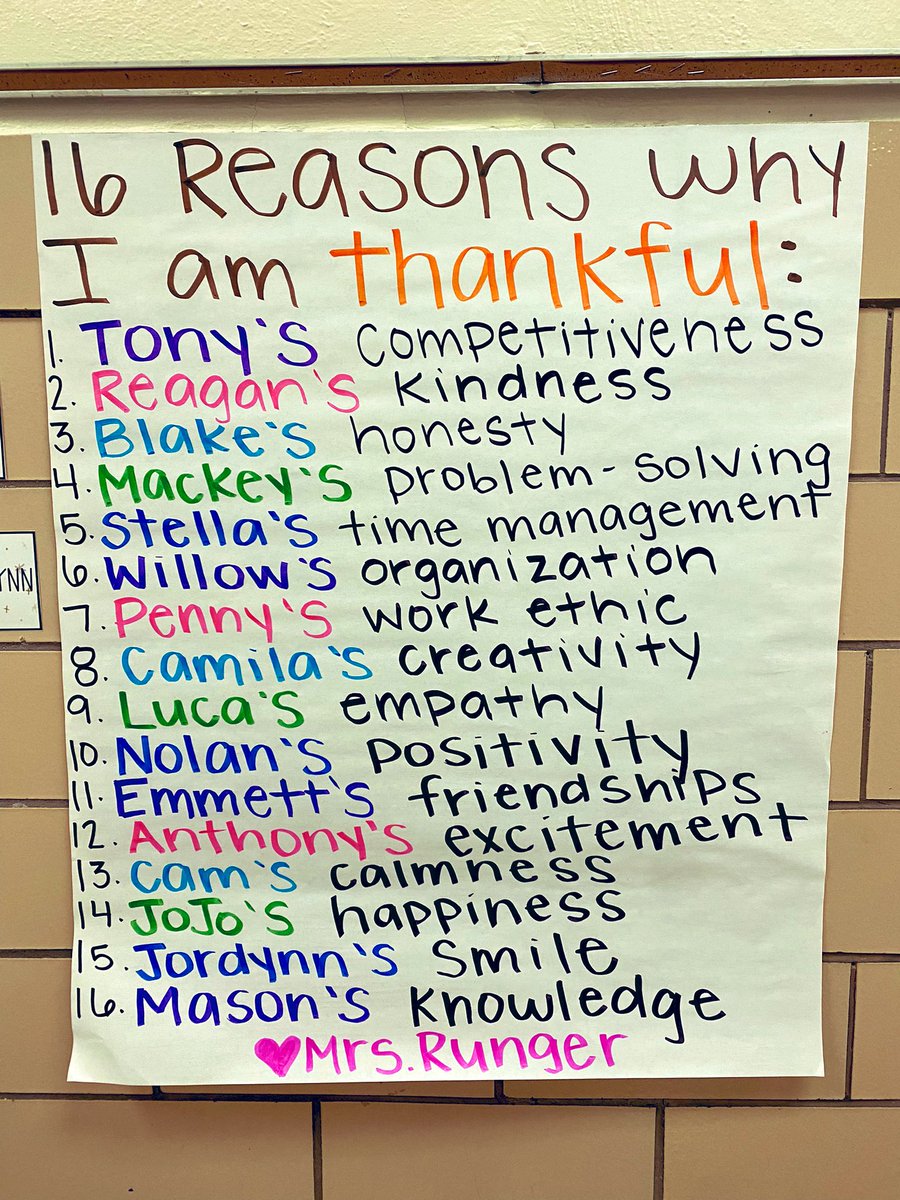 16 Reasons why
I am thankful:
1. Tony's competitiveness
2. Reagan's kindness
3. Blake's honesty
4. Mackey's problem-solving
5. Stella's time management
6. Willow's organization
7. Penny's work ethic
8. Camila's creativity
9. Luca's empathy
10. Nolan's positivity
11. Emmett's friendships
12. Anthony's excitement
13. Cam's calmness
14. JoJo's happiness
15. Jordynn's smile
16. Mason's knowledge
♥Mrs. Runger